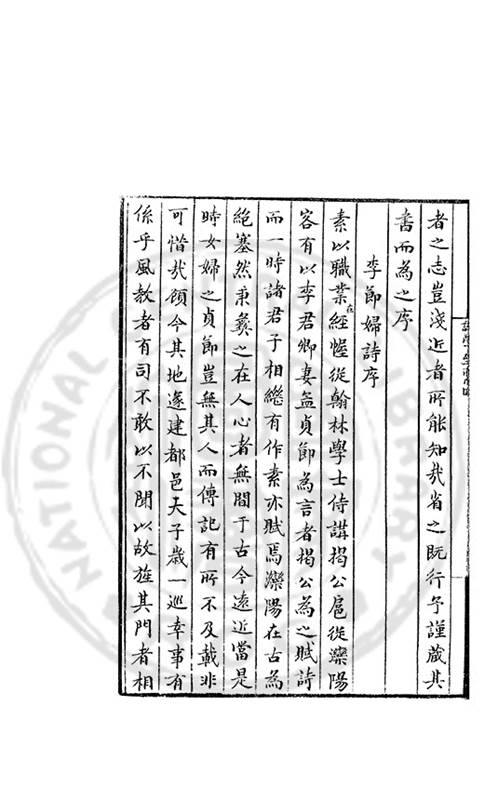 者之志豈淺近者所能知哉省之既行予謹蔵其
書而為之序
李節婦詩序
素以職業在經幄從翰林學士侍講揭公扈從灤陽
客有以李君卿妻孟貞節為言者揭公為之賦詩
而一時諸君子相繼有作素亦賦焉灤陽在古為
絶塞然秉彝之在人心者無間于古今遠近當是
時女婦之貞節豈無其人而傳記有所不及載非
可惜哉顧今其地遂建都邑天子歳一巡幸事有
係乎風教者有司不敢以不聞以故旌其門者相
NATIONAL
LIBRARY